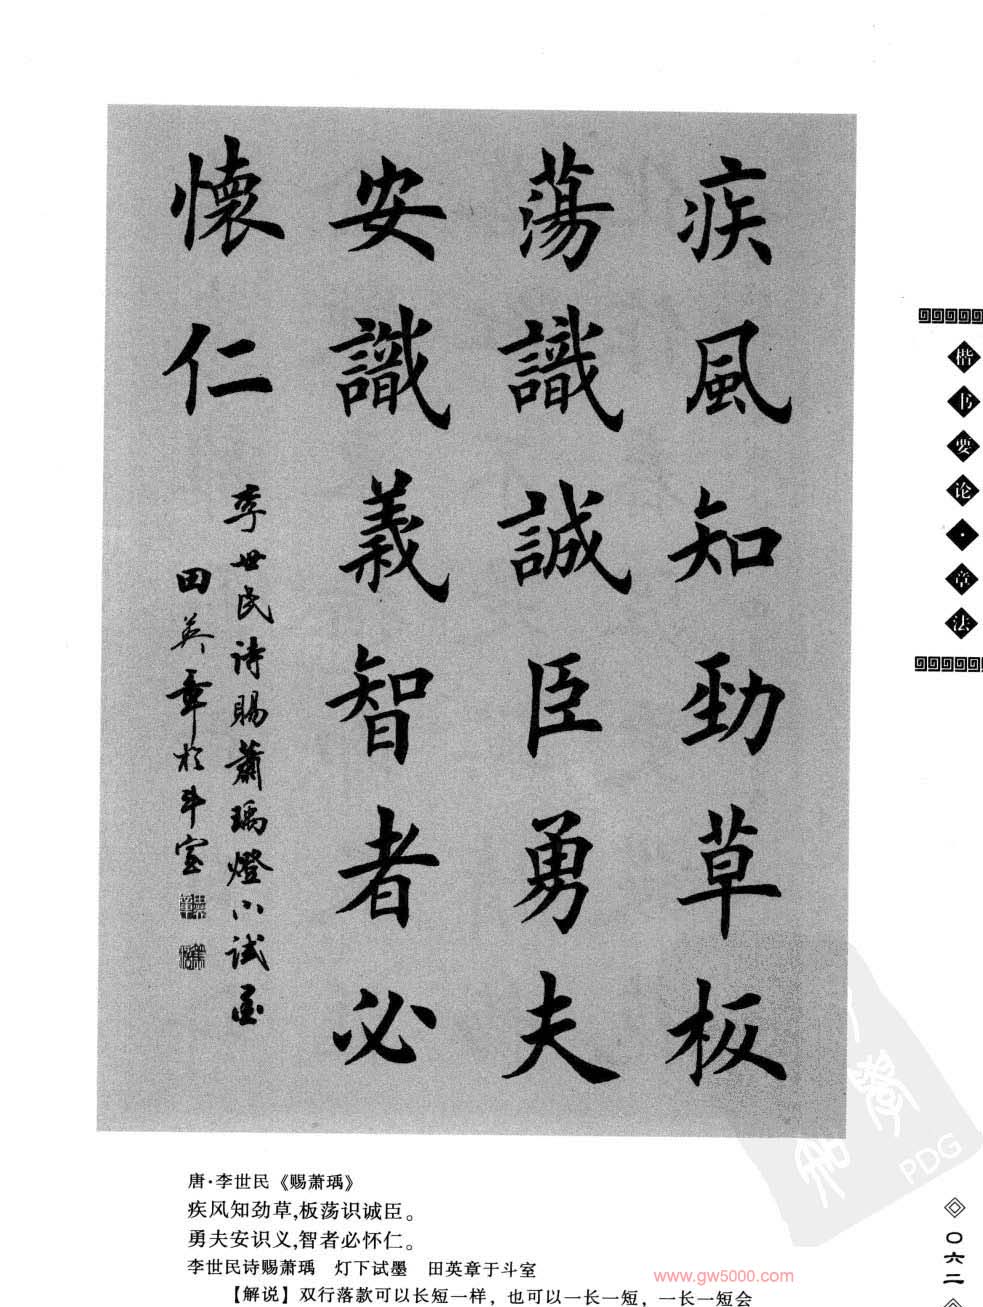 疾風知勁草板
蕩識誠臣勇夫
安識義智者必
懷仁
李世民诗賜蕭瑀燈下试墨
田英章於斗室
楷书要论·章法
唐·李世民《赐萧瑀》
疾风知劲草,板荡识诚臣。
勇夫安识义,智者必怀仁。
李世民诗赐萧瑀 灯下试墨 田英章于斗室
【解说】双行落款可以长短一样，也可以一长一短，一长一短会
〇六二
www.gw5000.com
PDG